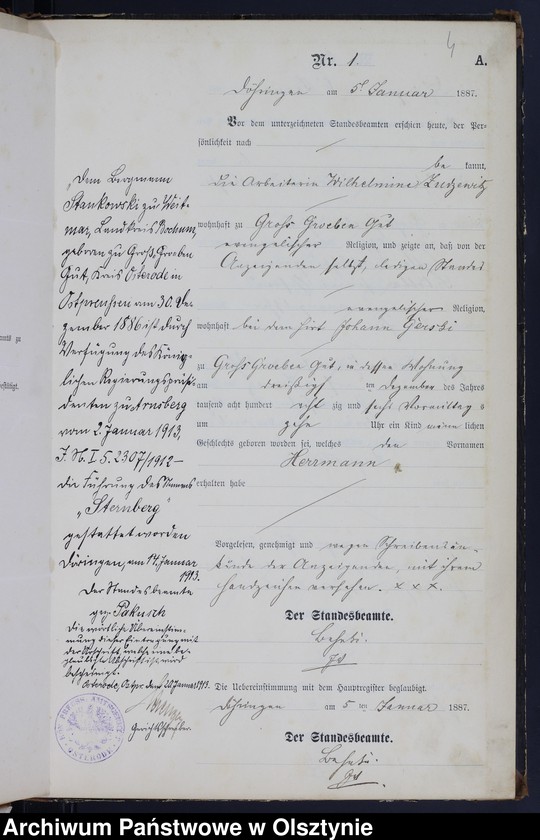 4
Nr. 1
A.
Döhringen am 5t Januar 1887.
Vor dem unterzeichneten Standesbeamten erschien heute, der Per-
sönlichkeit nach
be kannt,
die Arbeiterin Wilhelmine
wohnhaft zu Groß Groeben Gut
evangelischer Religion, und zeigte an, daß von der
Anzeigenden selbst, ledigen Standes
evangelischer Religion,
wohnhaft bei dem Hirt Johann Gerski
zu Groß Groeben Gut, in dessen Wohnung
am dreißigst ten Dezember des Jahres
tausend acht hundert acht zig und sechs Vormittags
um zehn Uhr ein Kind männ lichen
Geschlechts geboren worden sei, welches den Vornamen
Herrmann
erhalten habe
Vorgelesen, genehmigt und wegen Schreibensun-
kunde der Anzeigenden, mit ihrem
Handzeichen versehen. x x x.
Der Standesbeamte.
Die Uebereinstimmung mit dem Hauptregister beglaubigt.
Döhringen am 5 ten Januar 1887.
Der Standesbeamte.
Dem Bergmann
Stankowski zu Weit-
mar, Landkreis Bochum,
geboren zu Groß Groeben
Gut, Kreis Osterode in
Ostpreußen am 30. De-
zember 1886 ist durch
Verfügung des König-
lichen Regierungspräsi-
denten zu Arnsberg
vom 2. Januar 1913,
J. N. I 5. 2307/1912 –
die Führung des Namens
„Sternberg"
gestattet worden
Döringen, am 14. Januar
1913.
Der Standesbeamte
gez. Pakusch
Die wörtliche Übereinstim-
mung dieser Eintragung mit
der Vorschrift
glaubigte Abschrift ist wird
bescheinigt.
Osterode, Ostpr. den 20 Januar 1913.
Gerichtsschreiber
Archiwum Państwowe w Olsztynie